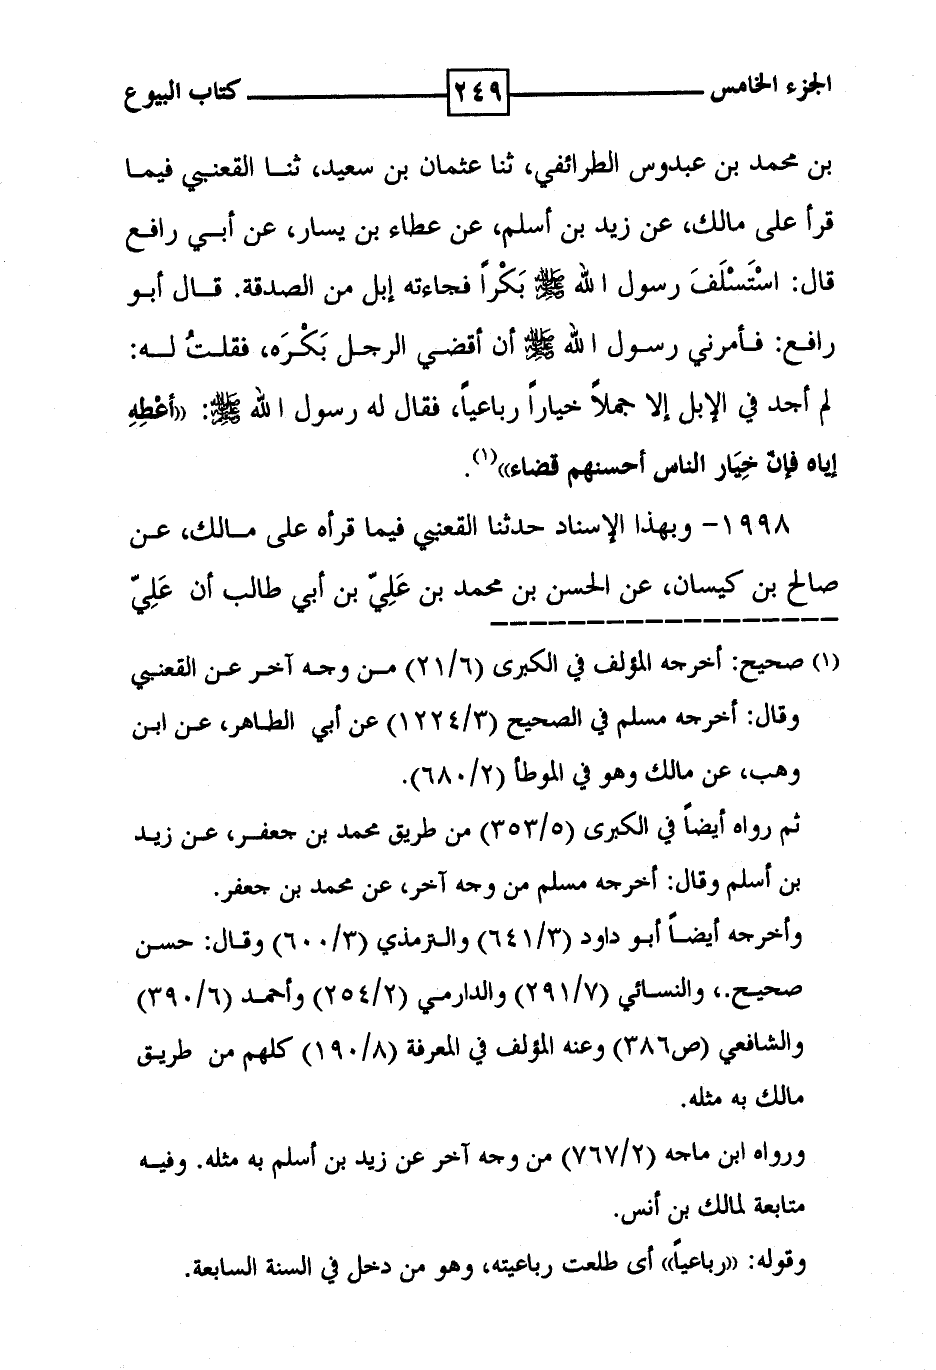 الجزء الخامس ٢٤٩ كتاب البيوع
بن محمد بن عبدوس الطرائفي، ثنا عثمان بن سعيد، ثنا القعنبي فيما
قرأ على مالك، عن زيد بن أسلم، عن عطاء بن يسار، عن أبي رافع
قال: اسْتَسْلَفَ رسول الله ﷺ بَكْراً فجاءته إبل من الصدقة. قال أبو
رافع: فأمرني رسول الله ﷺ أن أقضي الرجل بَكْرَه، فقلتُ له:
لم أجد في الإبل إلا جملاً خياراً رباعياً، فقال له رسول الله ﷺ: «أعْطِهِ
إياه فإنّ خِيَار الناس أحسنهم قضاء»(١).
١٩٩٨- وبهذا الإسناد حدثنا القعنبي فيما قرأه على مالك، عن
صالح بن كيسان، عن الحسن بن محمد بن عَلِيّ بن أبي طالب أن عَلِيّ
(١) صحيح: أخرجه المؤلف في الكبرى (٢١/٦) من وجه آخر عن القعنبي
وقال: أخرجه مسلم في الصحيح (١٢٢٤/٣) عن أبي الطاهر، عن ابن
وهب، عن مالك وهو في الموطأ (٦٨٠/٢).
ثم رواه أيضاً في الكبرى (٣٥٣/٥) من طريق محمد بن جعفر، عن زيد
بن أسلم وقال: أخرجه مسلم من وجه آخر، عن محمد بن جعفر.
وأخرجه أيضاً أبو داود (٦٤١/٣) والترمذي (٦٠٠/٣) وقال: حسن
صحيح.، والنسائي (٢٩١/٧) والدارمي (٢٥٤/٢) وأحمد (٣٩٠/٦)
والشافعي (ص٣٨٦) وعنه المؤلف في المعرفة (١٩٠/٨) كلهم من طريق
مالك به مثله.
ورواه ابن ماجه (٧٦٧/٢) من وجه آخر عن زيد بن أسلم به مثله. وفيه
متابعة لمالك بن أنس.
وقوله: «رباعياً» أى طلعت رباعيته، وهو من دخل في السنة السابعة.